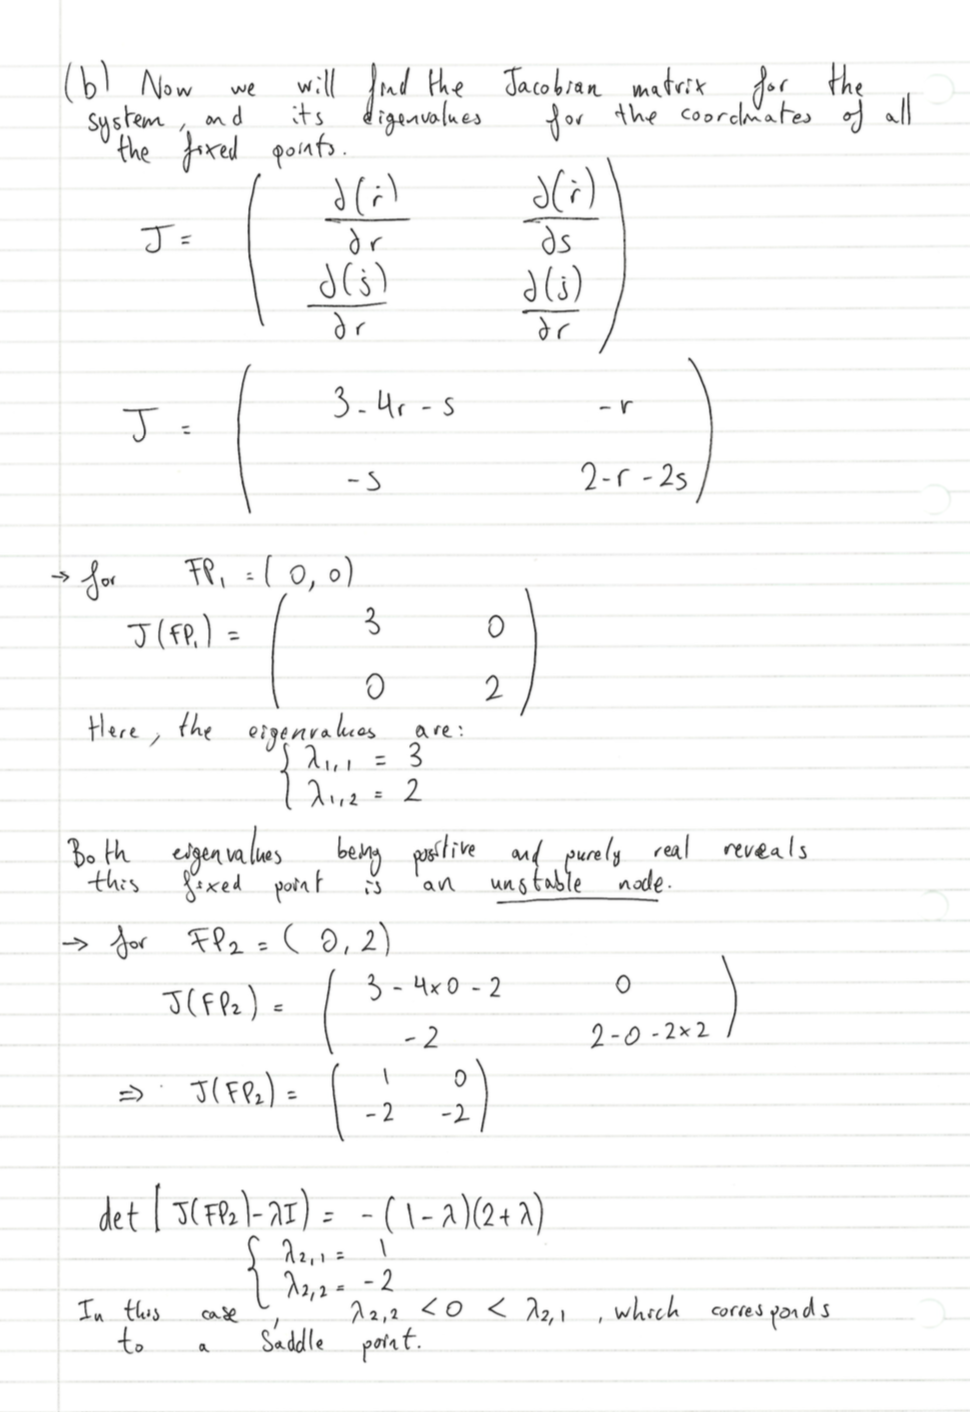 (b) Now we will find the Jacobian matrix for the
system, and its eigenvalues for the coordinates of all
the fixed points.
J = ( ∂(ṙ)/∂r ∂(ṙ)/∂s
∂(ṡ)/∂r ∂(ṡ)/∂r )
J = ( 3-4r-s -r
-s 2-r-2s )
→ for FP₁ = (0,0)
J(FP₁) = ( 3 0
0 2 )
Here, the eigenvalues are:
{ λ₁,₁ = 3
λ₁,₂ = 2
Both eigenvalues being positive and purely real reveals
this fixed point is an unstable node.
→ for FP₂ = (0,2)
J(FP₂) = ( 3-4×0-2 0
-2 2-0-2×2 )
⇒ J(FP₂) = ( 1 0
-2 -2 )
det(J(FP₂)-λI) = -(1-λ)(2+λ)
{ λ₂,₁ = 1
λ₂,₂ = -2
In this case, λ₂,₂ <0 < λ₂,₁, which corresponds
to a Saddle point.